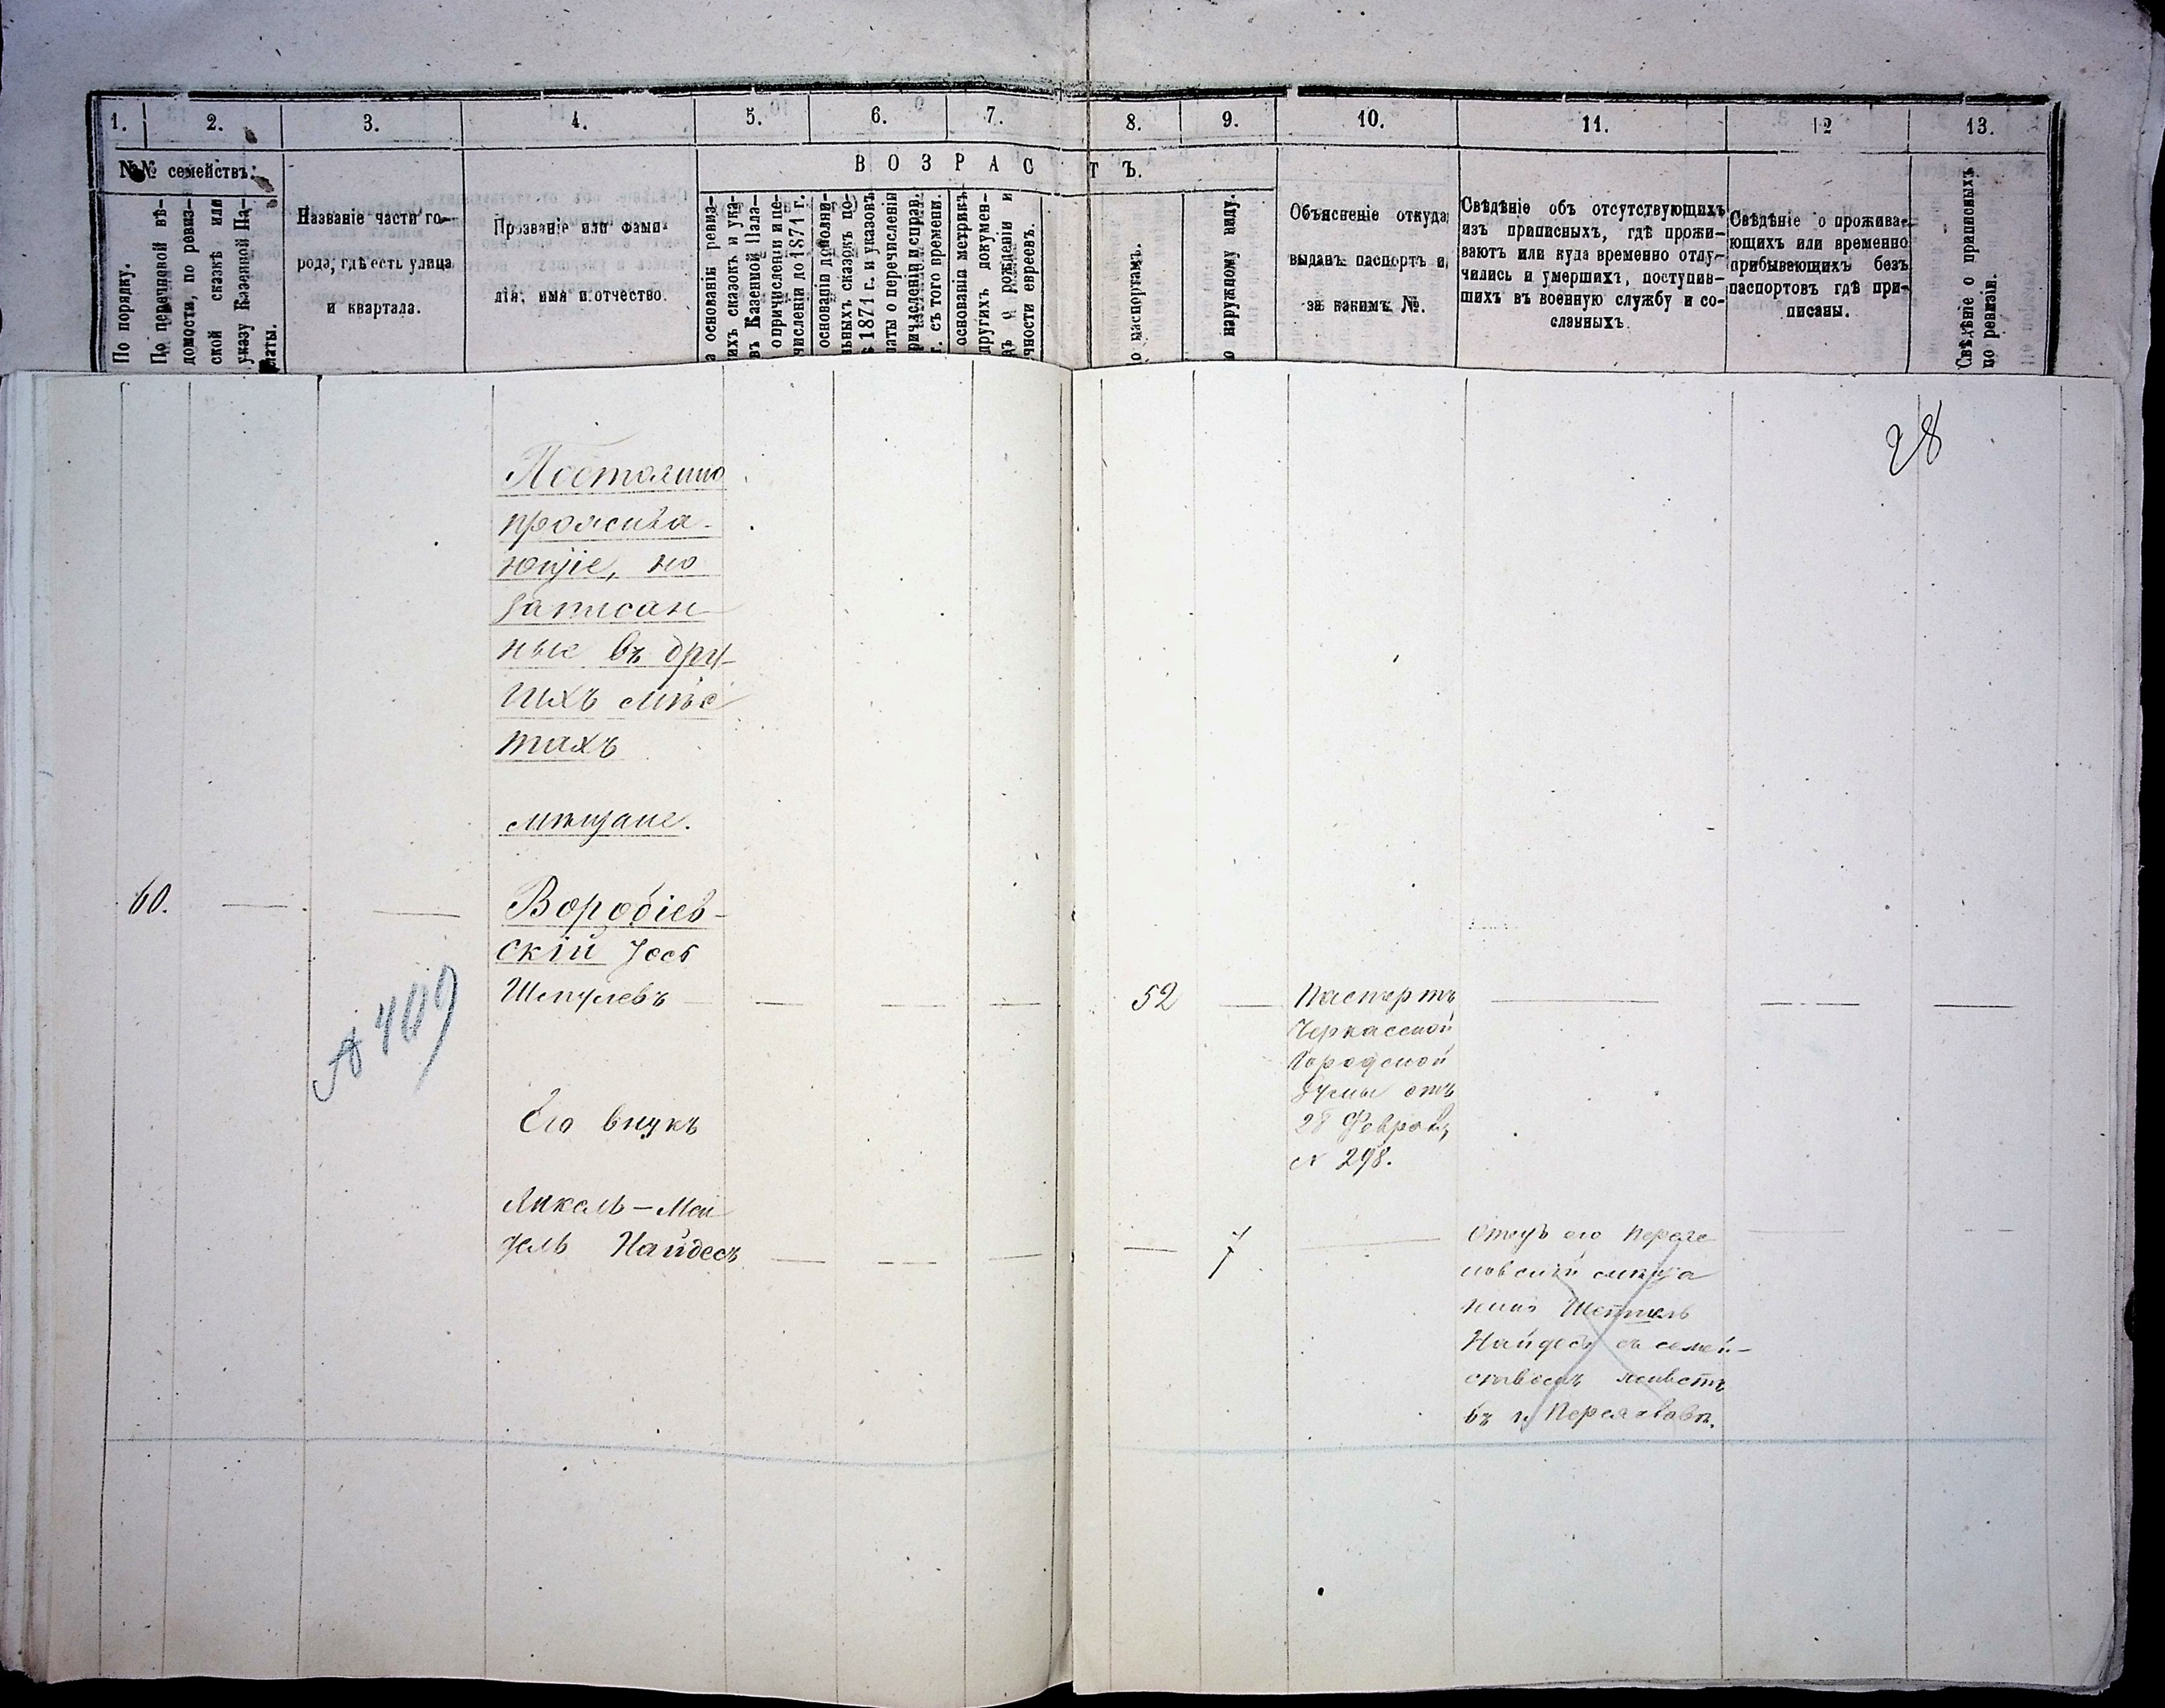 1. 2. 3. 4. 5. 6. 7. 8. 9. 10. 11. 12 13.
№№ семействъ.
По порядку.
По перечневой вѣ-
домости, по ревиз-
ской сказкѣ или
указу Казенной Па-
латы.
Названіе части го-
рода, гдѣ есть улица
и квартала.
Прозваніе или фами-
лія, имя и отчество.
ВОЗРАСТЪ.
а основаніи ревиз-
ихъ сказокъ и ука-
въ Казенной Пала-
о причисленіи и пе-
численіи до 1871 г.
основаніи дополни-
льныхъ сказокъ по-
ѣ 1871 г. и указовъ
латы о перечисленіи
причисленіи и справ.
г. съ того времени.
основаніи метрикъ
другихъ докумен-
ъ о рожденіи и
чности евреевъ.
о паспортамъ.
о наружному виду.
Объясненіе откуда
выданъ паспортъ и
за какимъ №.
Свѣдѣніе объ отсутствующихъ
изъ приписныхъ, гдѣ прожи-
ваютъ или куда временно отлу-
чились и умершихъ, поступив-
шихъ въ военную службу и со-
сланныхъ.
Свѣдѣніе о прожива-
ющихъ или временно
прибывающихъ безъ
паспортовъ гдѣ при-
писаны.
Свѣдѣніе о приписныхъ
по ревизіи.
28
Постоянно
прожива-
ющіе, но
записан
ные въ дру-
гихъ мѣс
тахъ
мѣщане.
60.
Воробіев-
скій Іось
Шмулевъ
52
Паспортъ
Черкасской
Городской
Думы отъ
28 Февраля
№ 298.
А 409
Его внукъ
Янкель-Мен
дель Найдесъ
7
Отецъ его Перея
мѣща
нинъ
Найдесъ съ семей-
ствомъ живетъ
въ г. Переяславѣ.